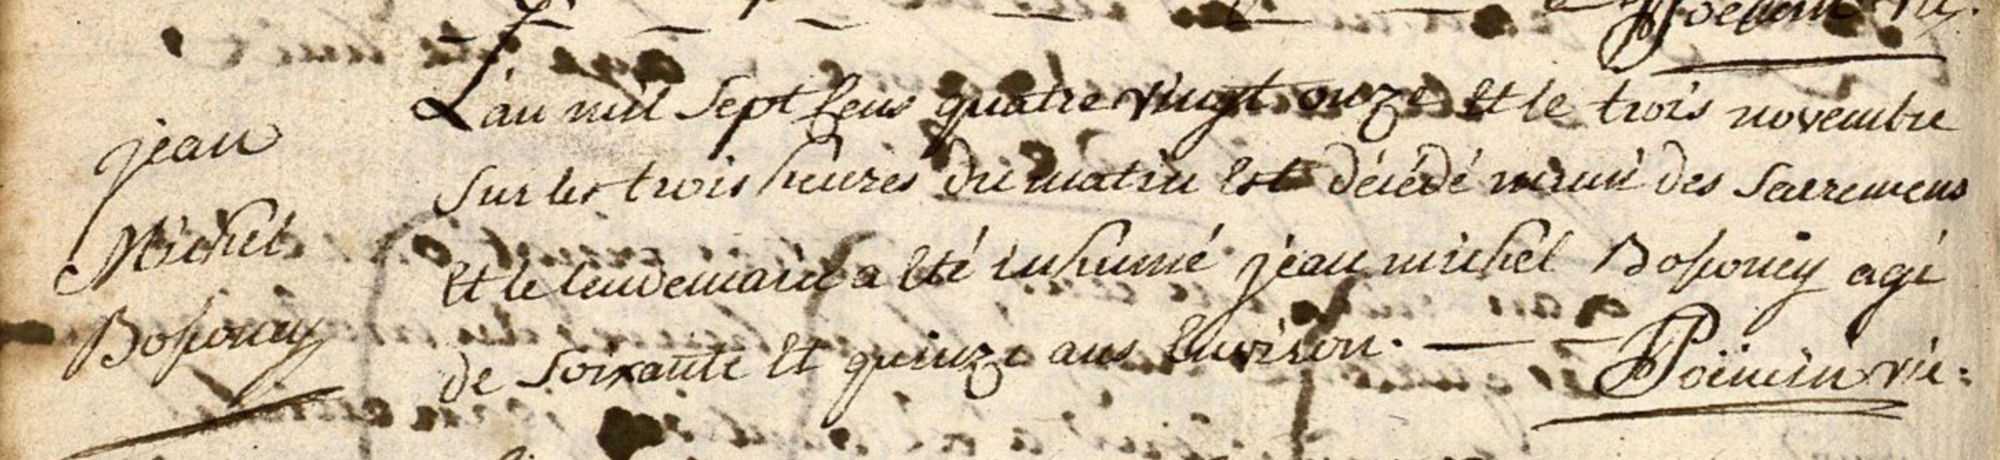 jean
Michel
Bossoney
L'an mil sept cens quatre vingt onze et le trois novembre
sur les trois heures du matin est décédé muni des sacremens
et le lendemain a été inhumé jean michel Bossoney agé
de soixante et quinze ans environ.
vic: